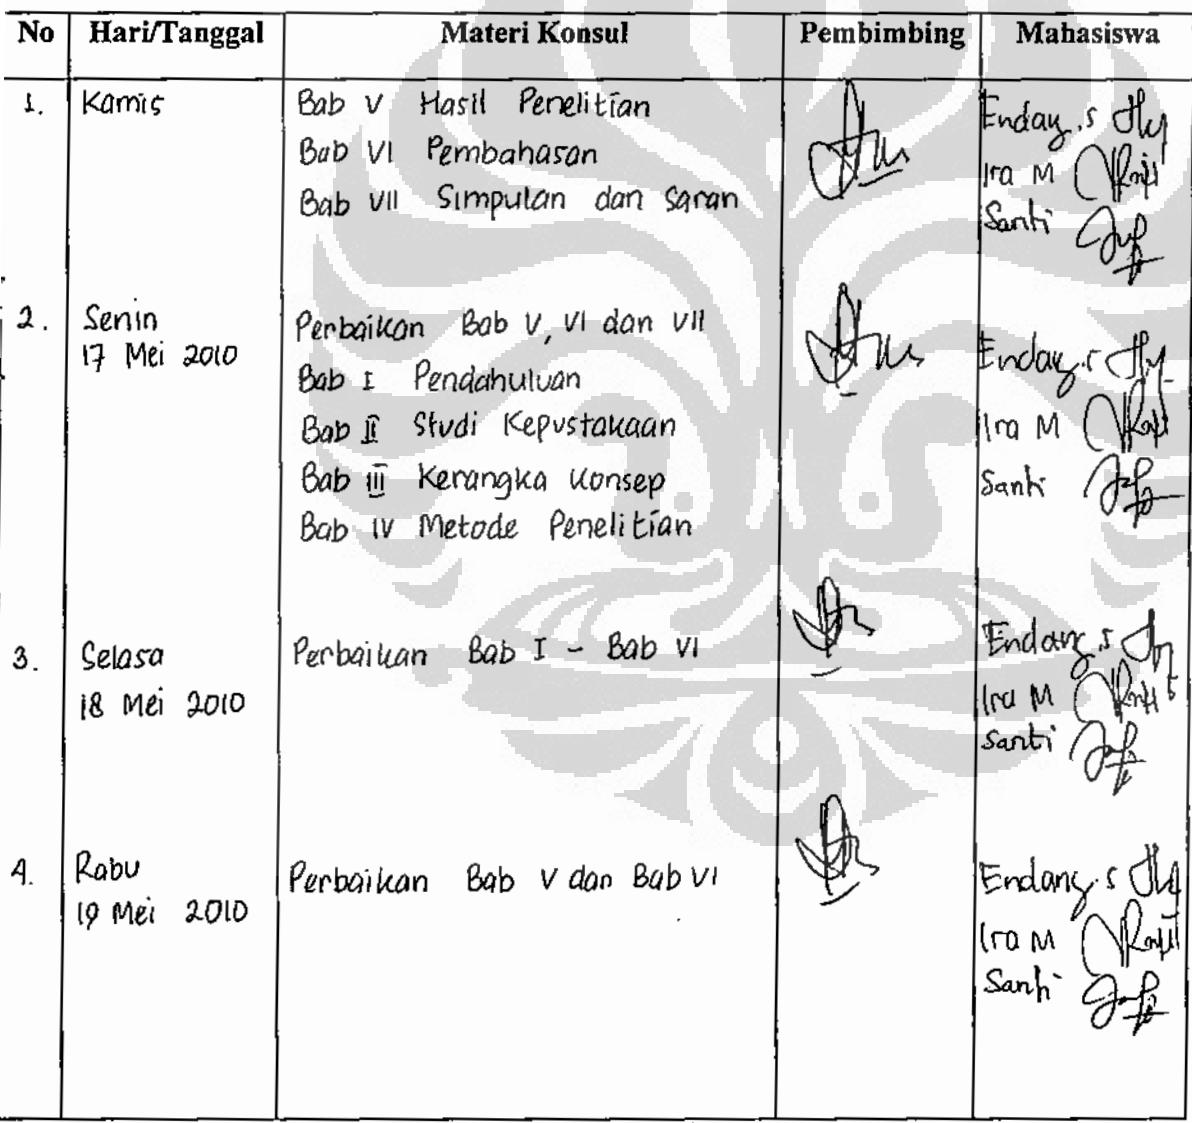 No Hari/Tanggal Materi Konsul Pembimbing Mahasiswa
1. Kamis
Bab V Hasil Penelitian
Bab VI Pembahasan
Bab VII Simpulan dan Saran
Endang.S
Ira M
Santi
2. Senin
17 Mei 2010
Perbaikan Bab V, VI dan VII
Bab I Pendahuluan
Bab II Studi Kepustakaan
Bab III Kerangka Konsep
Bab IV Metode Penelitian
Endang.S
Ira M
Santi
3. Selasa
18 Mei 2010
Perbaikan Bab I - Bab VI
Endang.S
Ira M
Santi
4. Rabu
19 Mei 2010
Perbaikan Bab V dan Bab VI
Endang.S
Ira M
Santi